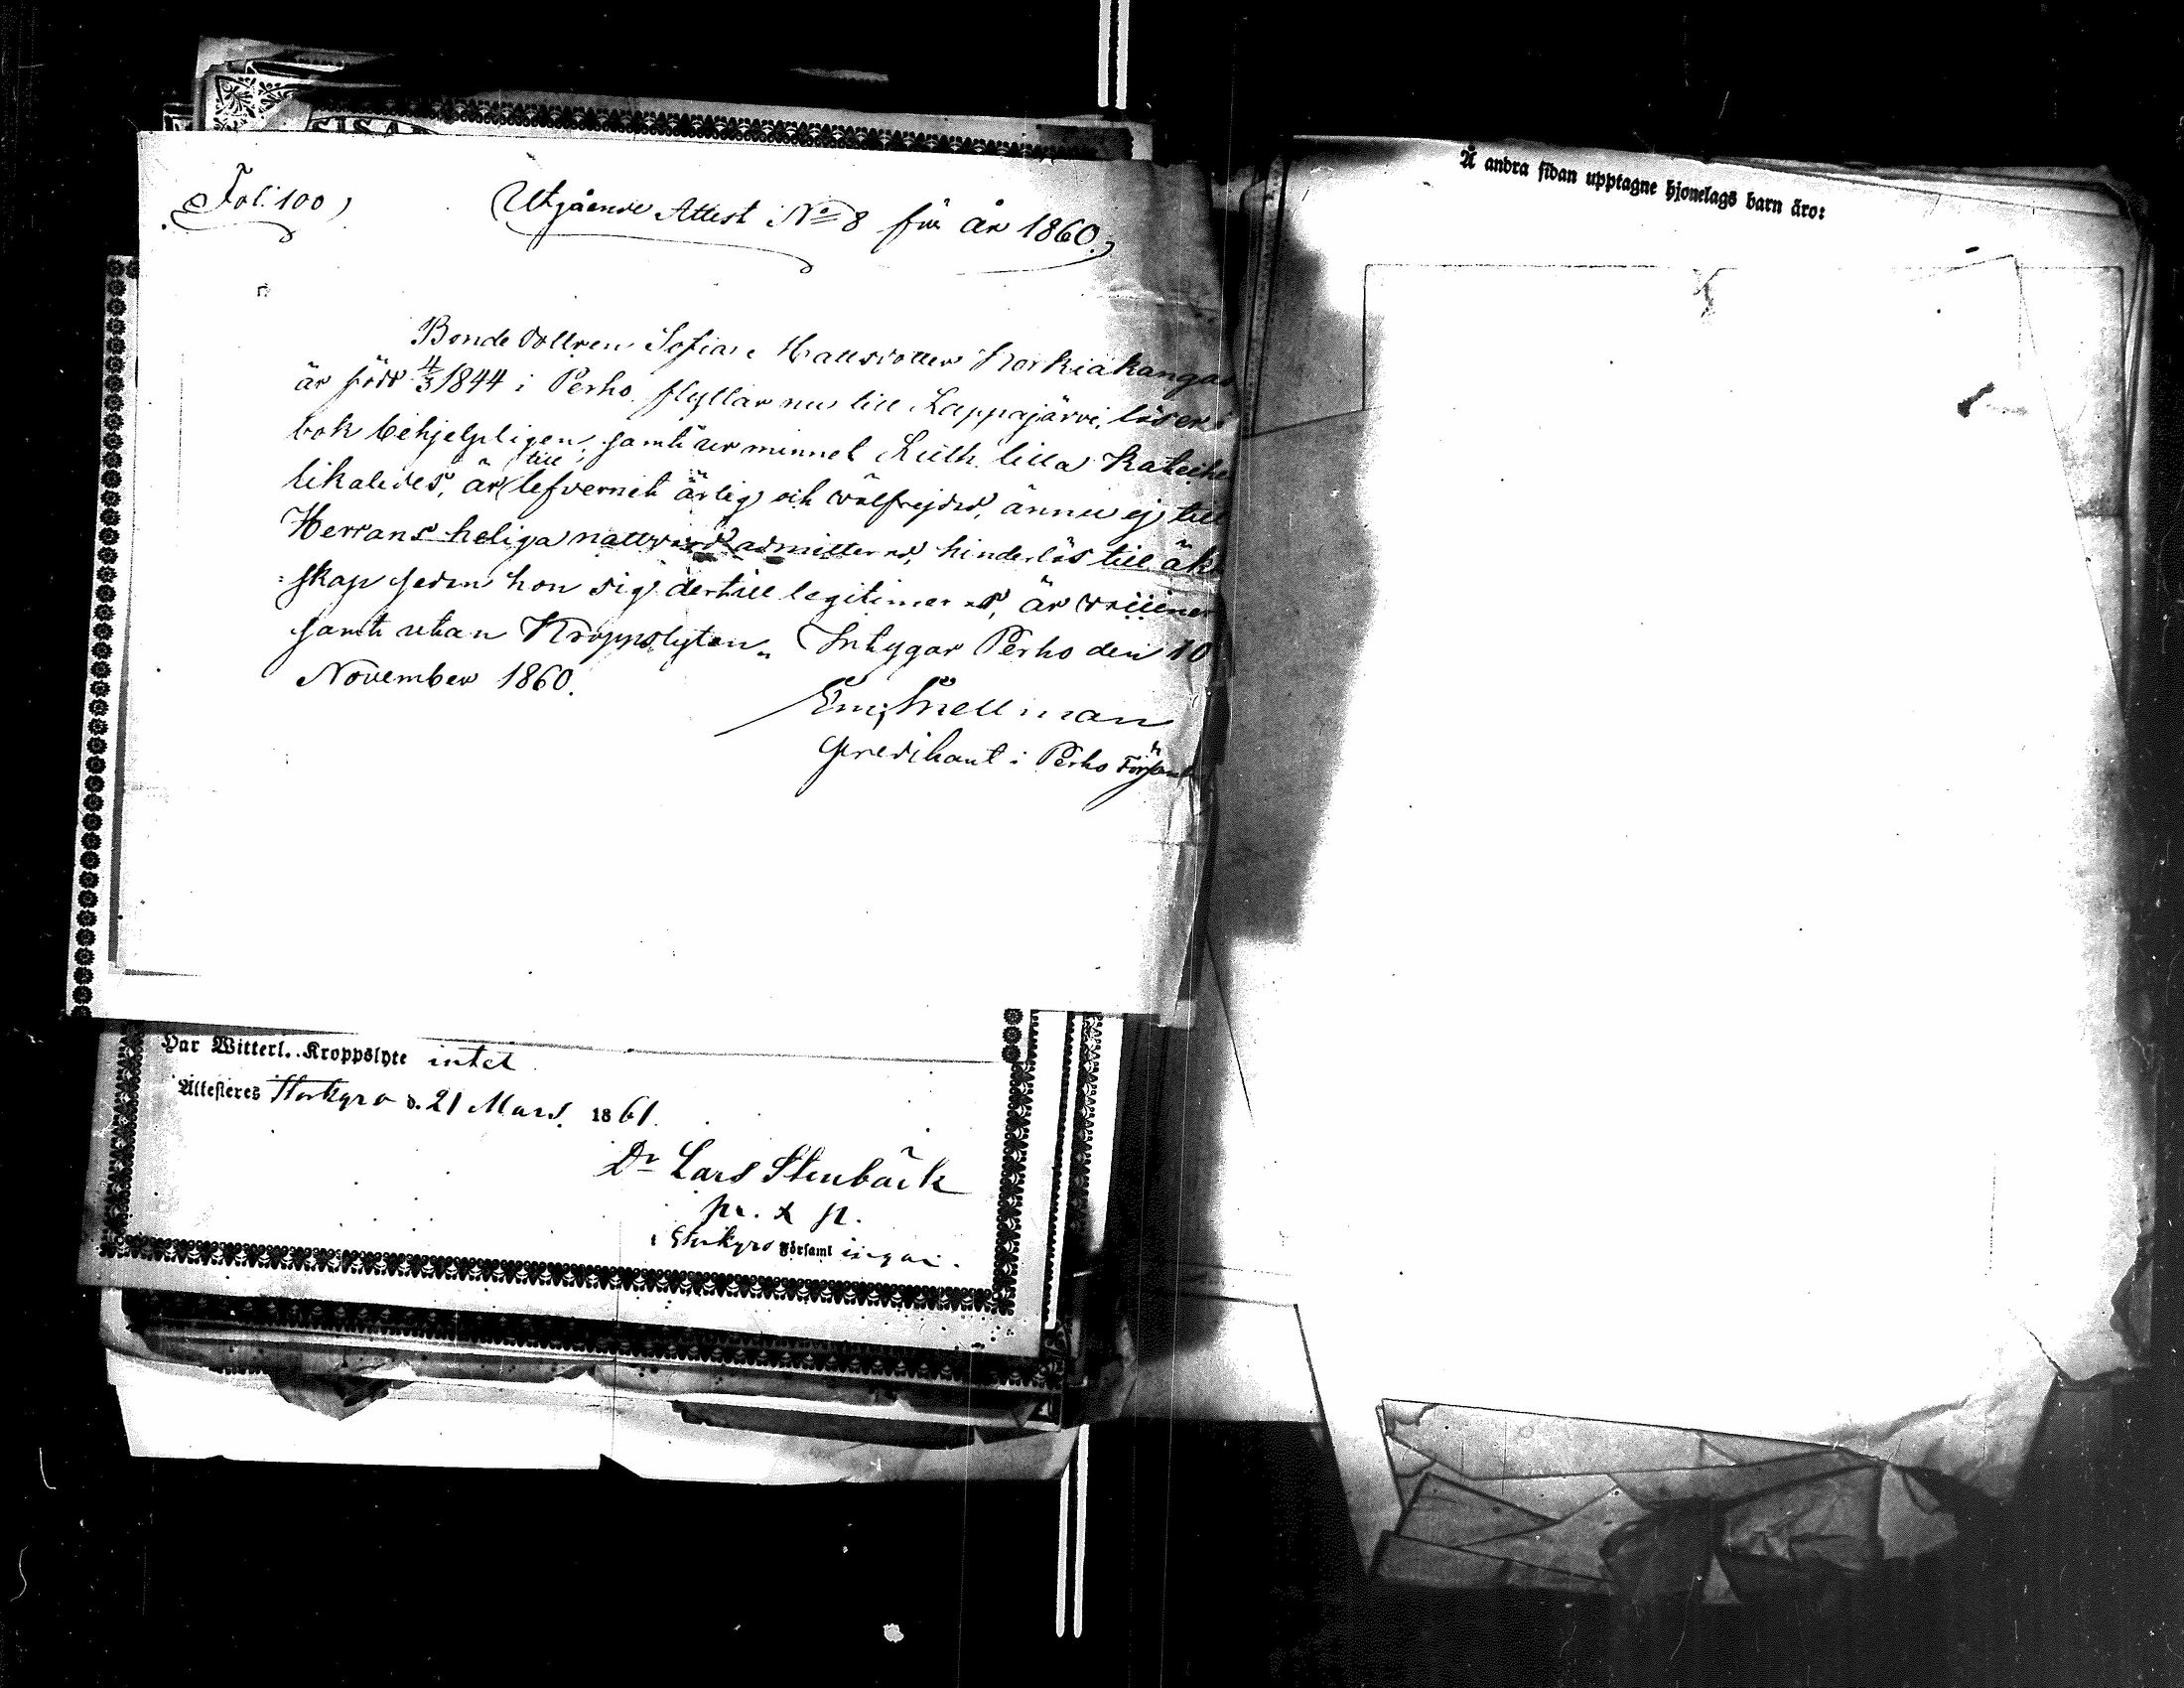 Fol. 100,
Utgående Attest No 8 för år 1860.
Bonde dottren Sofia Mattsdotter Korkiakangas
är född 4/3 1844 i Perho, flyttar nu till Lappajärvi, läser i
bok behjelpligen, samt ur minnet Luth. lilla Kateche
likaledes, är till lefvernet ärlig och wälfrejdad, ännu ej till
Herrans heliga nattvard admitterad, hinderlös till äkt
skap sedan hon sig dertill legitimerat, är
samt utan Kroppslyten. Intygar Perho den 10
November 1860.
Snellman
predikant i Perho Församl
Har Witterl. Kroppslyte intet
Attesteres Storkyro d. 21 Mars 1861.
Dr Lars Stenbäck
i Storkyro Församl ingar.
Å andra sidan upptagne hjonelags barn äro: